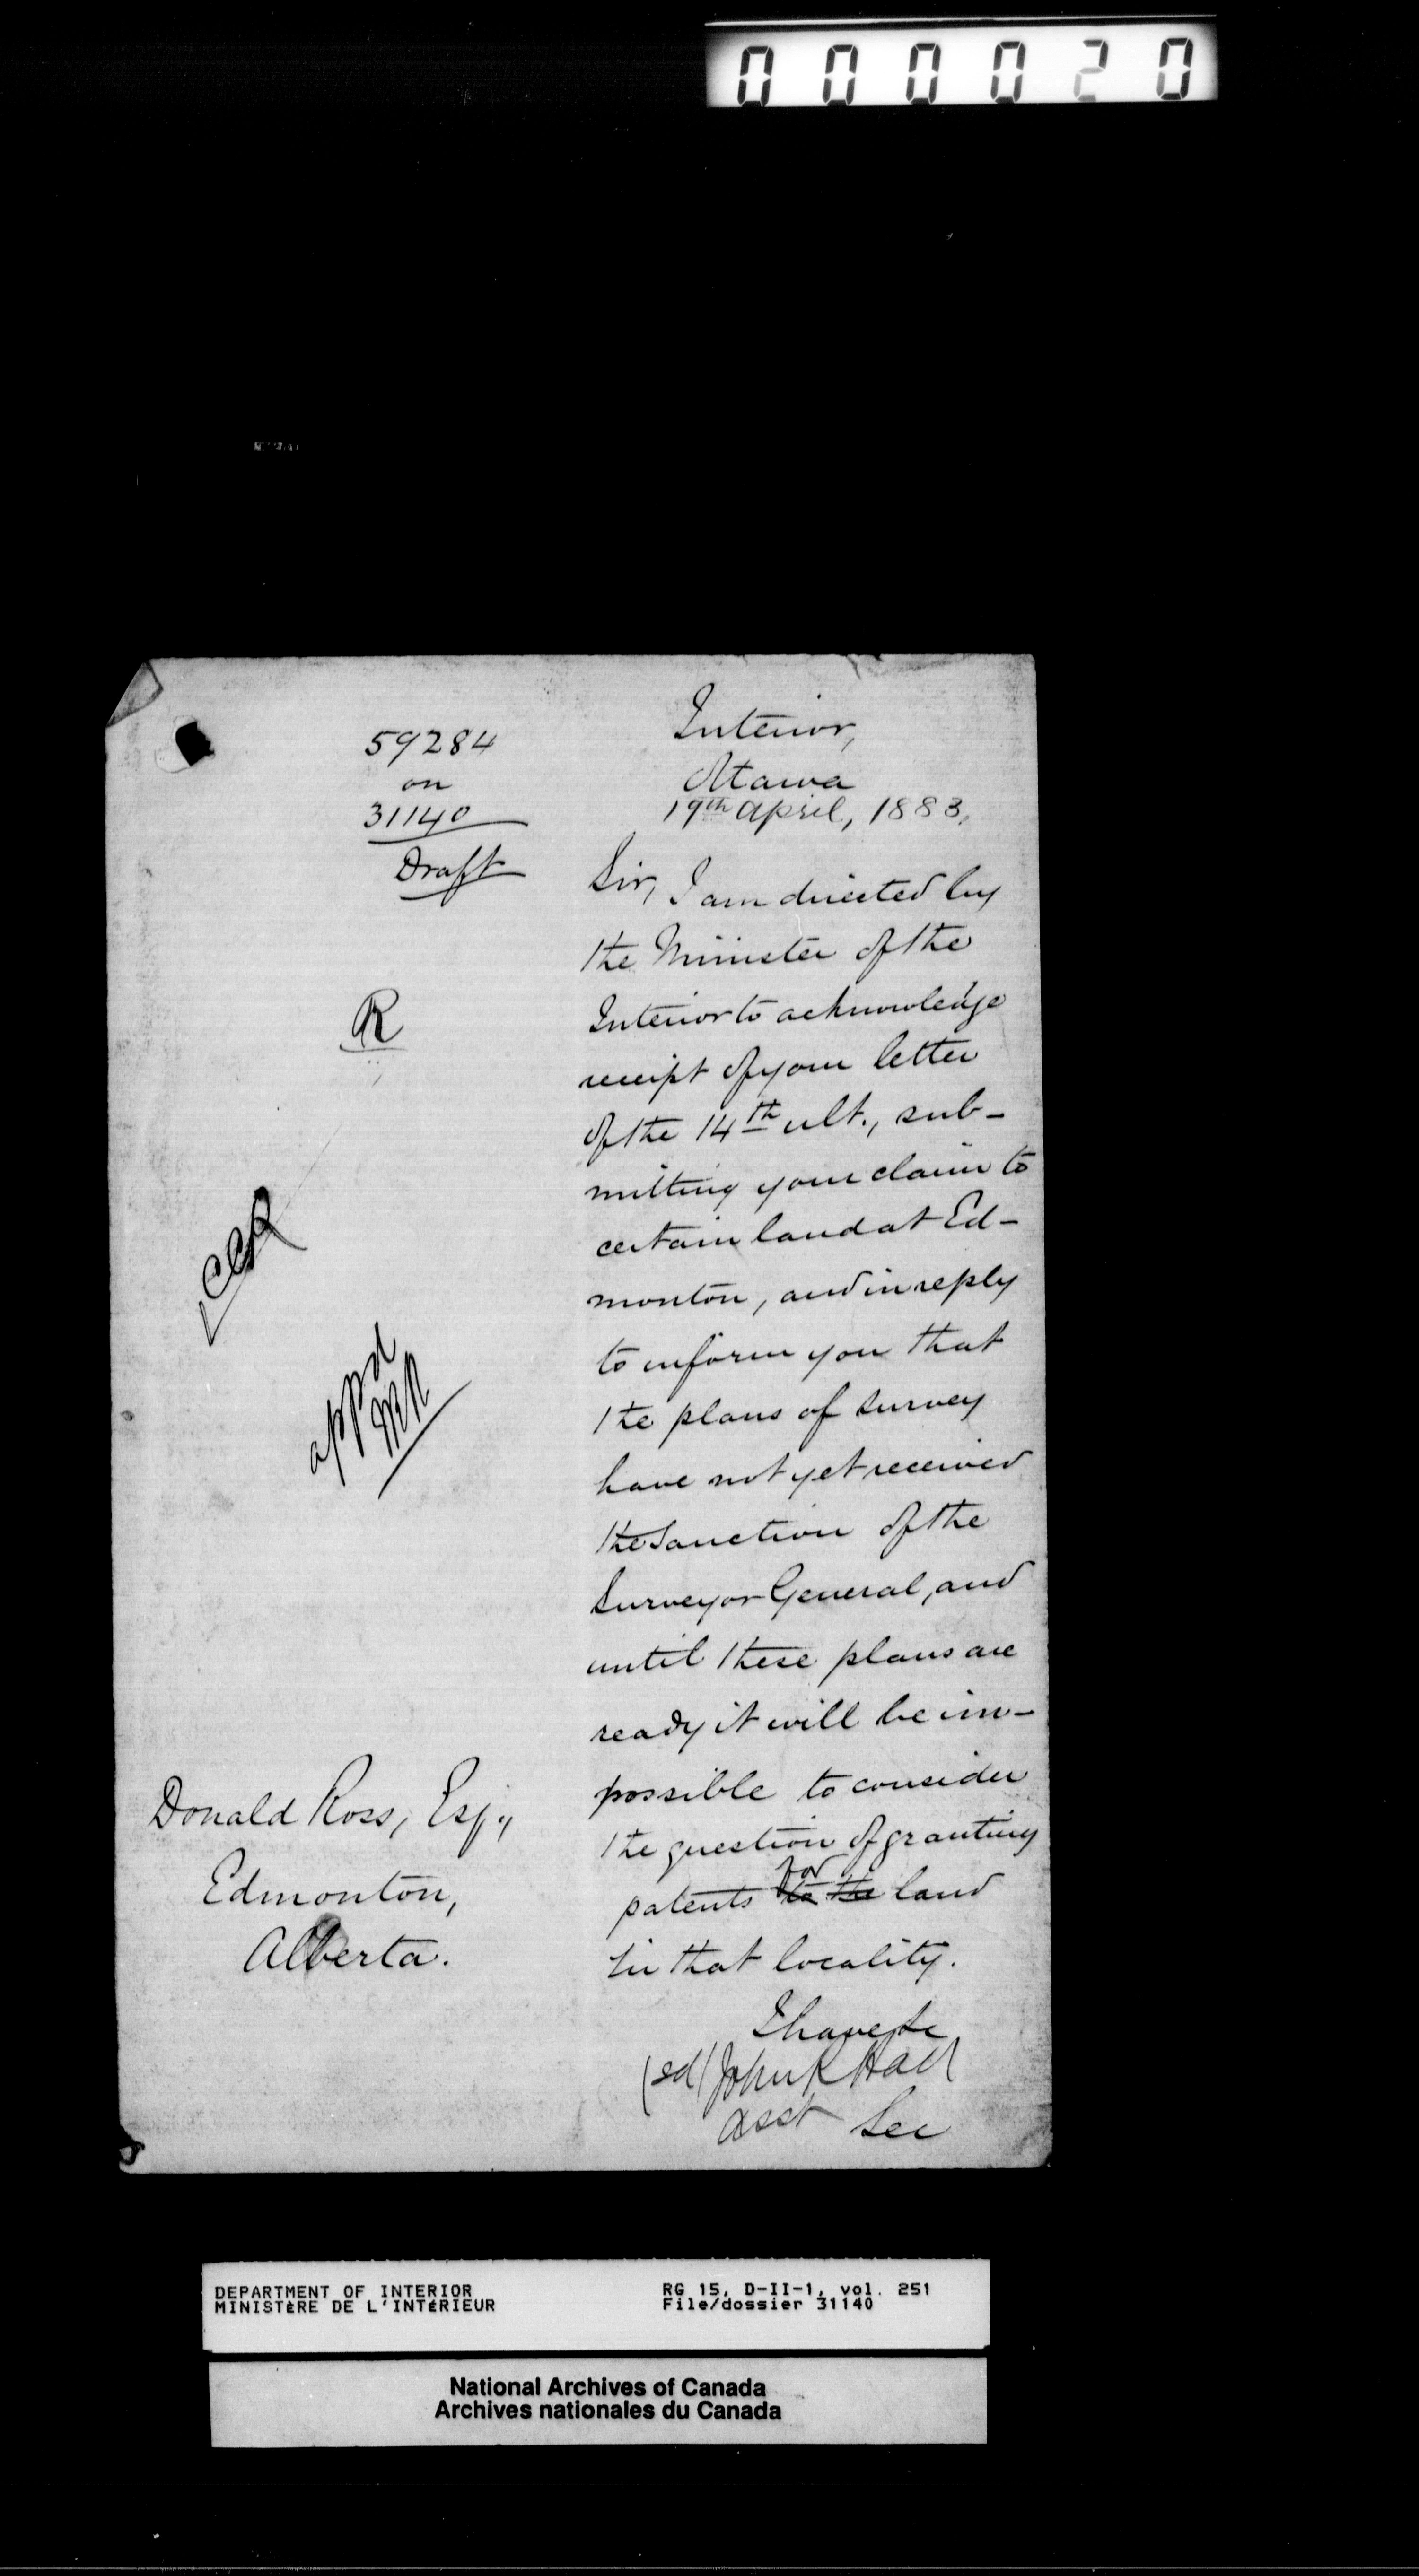 000020
59284
on
31140
Draft
R
appd
Donald Ross, Esq.,
Edmonton,
Alberta.
Interior,
Ottawa
19th April, 1883,
Sir, I am directed by
the Minister of the
Interior to acknowledge
receipt of your letter
of the 14th ult., sub-
mitting your claim to
certain land at Ed-
monton, and in reply
to inform you that
the plans of survey
have not yet received
the sanction of the
Surveyor General, and
until these plans are
ready it will be im-
possible to consider
the question of granting
for
patents to the land
in that locality.
I have &c
(sd) John R Hall
Asst Sec
DEPARTMENT OF INTERIOR
MINISTÈRE DE L'INTÉRIEUR
RG 15, D-II-1, vol. 251
File/dossier 31140
National Archives of Canada
Archives nationales du Canada